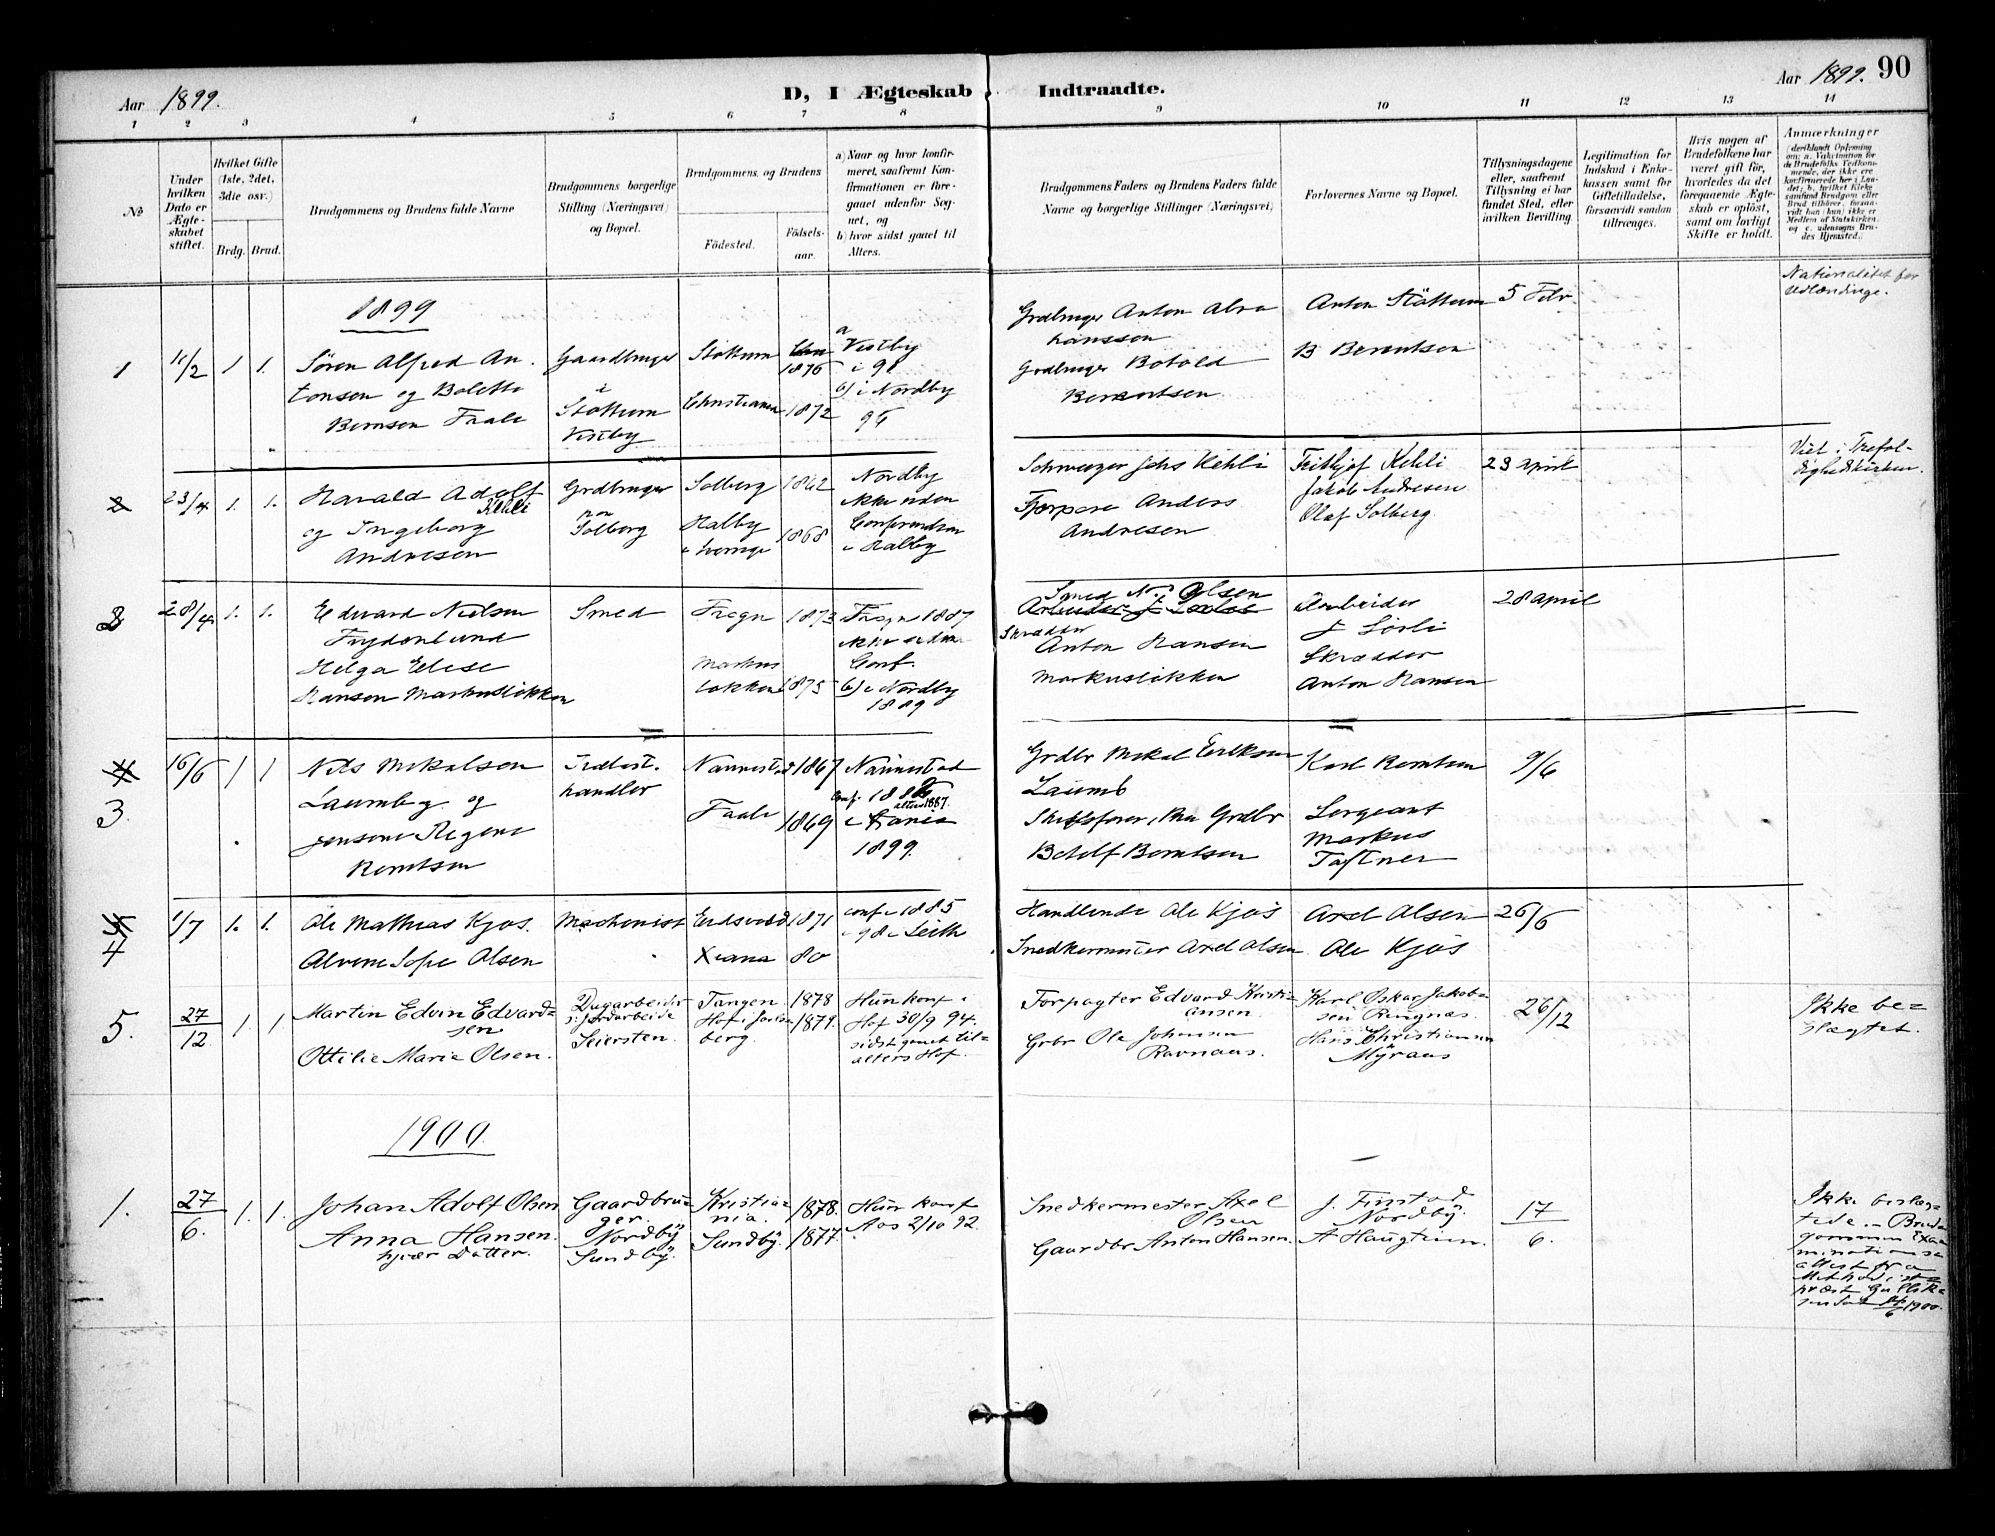 Aar 1899.
D, I Ægteskab Indtraadte.
Aar 1899. 90
1 2 3 4 5 6 7 8 9 10 11 12 13 14
No
Under hvilken Dato er Ægteskabet stiftet.
Hvilket Gifte (1ste, 2det, 3die osv.)
Brdg. Brud.
Brudgommens og Brudens fulde Navne
Brudgommens borgerlige Stilling (Næringsvei) og Bopæl.
Brudgommens, og Brudens
Fødested.
Fødselsaar.
a) Naar og hvor konfirmeret, saafremt Konfirmationen er foregaaet udenfor Sognet, og
b) hvor sidst gaaet til Alters.
Brudgommens Faders og Brudens Faders fulde Navne og borgerlige Stillinger (Næringsvei)
Forlovernes Navne og Bopæl.
Tillysningsdagene eller, saafremt Tillysning ei har fundet Sted, efter hvilken Bevilling.
Legitimation for Indskud i Enkekassen samt for Giftetilladelse, forsaavidt saadan tiltrænges.
Hvis nogen af Brudefolkene har været gift før, hvorledes da det foregaaende Ægteskab er opløst, samt om lovligt Skifte er holdt.
Anmærkninger
Nationalitet for Udlændinge.
1899
1 11/2 1 1.
Søren Alfred An.
tonsen og Bolette
Bernsen Faale
Gaardbruger
i
Støttum
Vestby
Støttum 1876
Christiania 1872
a
Vestby
i 91
b) i Nordby
Grdbruger Anton Abra
hamssen
Grdbruger Botold
Berentsen
Anton Støttum
B Berentsen
5 Febr
2 23/4 1. 1.
Harald Adolf
Kehli
og Ingeborg
Andresen
Grdbruger
paa
Solberg
Solberg 1862
Halby
i Sverige 1868
Nordby
ikke uden
i Halby
Schweizer Johs Kehli
Anders
Andresen
Frithjof Kehli
Jakob Andresen
Olaf Solberg
23 april
Viet i Trefol-
dighedkirken.
28/4 1. 1.
Edvard Nielsen
Frydenlund
Helga Elise
Hansen Markusløkken
Smed
Frogn 1873
Markus
løkken 1875
Frogn 1887
Conf.
b) i Nordby
1889
Smed N. Olsen
Skrædder
Anton Hansen
Markusløkken
Arbeider
J Sørli
Skrædder
Anton Hansen
28 april
4
3
16/6 1 1
Nils Mikalsen
Laumb g. og
Jensine Regine
Berntsen
Tredlast.
handler
Nannestad 1867
Faale 1869
Nannestad
1899.
Grdbr Mikal Eriksen
Laumb
Botolf Berntsen
Karl Berntsen
Sergeant
Markus
Taftner
9/6
5
4
1/7 1. 1.
Ole Mathias Kjøs.
Alvine Sofie Olsen
Maskenist
Eidsvold 1871
Xiania 80
conf i 1885
i 98 i Leith
Handlende Ole Kjøs
Snedkermester Axel Olsen
Axel Olsen
Ole Kjøs
26/6
5. 27/12 1 1
Martin Edvin Edvard-
sen
Ottilie Marie Olsen.
Dagarbeider
Seiersten.
Tangen 1878
Hof i Jarls-
berg. 1879.
Hun konf i
Hof 30/9 94.
sidst gaaet til-
alters Hof.
Forpagter Edvard Kristi-
ansen
Grbr Ole Johnsen
Ravnaas.
Karl Oskar Jakob-
sen Ringnæs.
Hans Christiansen
Myraas
26/12
Ikke be-
slægtet.
1900.
1. 27/6. 1. 1.
Johan Adolf Olsen
Anna Hansen.
hver Datter.
Gaardbru-
ger.
Nordby
Sundby.
Kristia-
nia. 1878.
Sundby. 1877.
Hun konf
Aas 2/10 92.
Snedkermester Axel
Olsen
Gaardbr Anton Hansen.
J. Finstad
Nordby.
A Haugtun.
17/6.
Ikke beslæg-
tede. Brud-
gommen Exa-
minations-
attest fra
Methodist-
præst
1900.